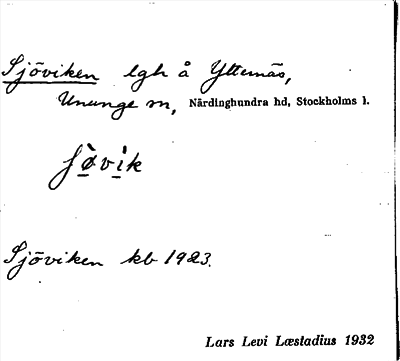 Sjöviken lgh å Ytternäs,
Ununge sn, Närdinghundra hd, Stockholms l.
Sjöviken kb 1923.
Lars Levi Læstadius 1932